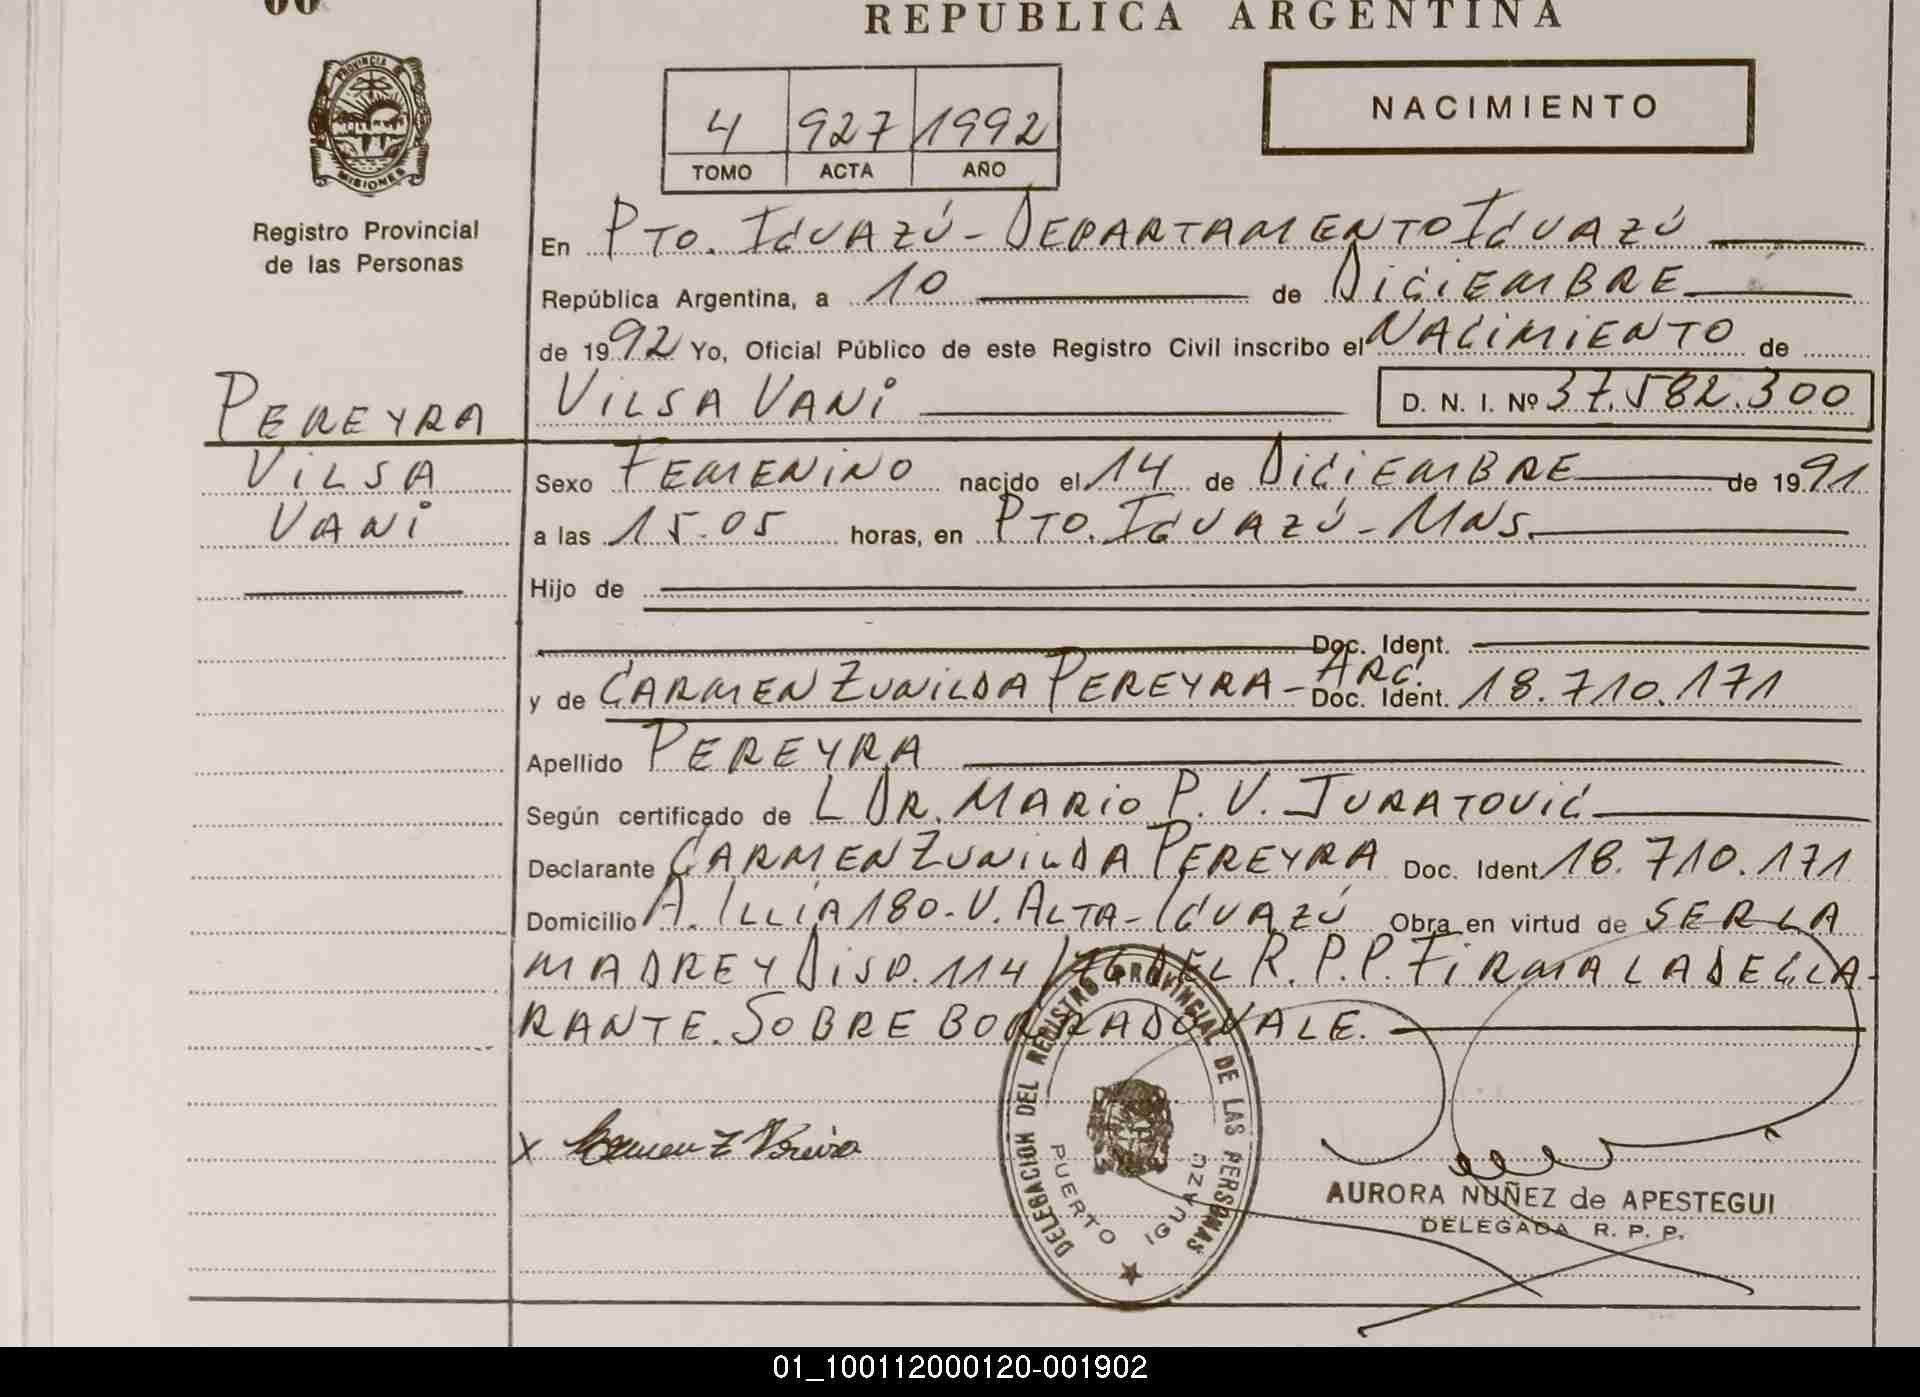 REPUBLICA ARGENTINA
PROVINCIA DE
MISIONES
Registro Provincial
de las Personas
4 927 1992
TOMO ACTA AÑO
NACIMIENTO
En PTO. IGUAZÚ - DEPARTAMENTO IGUAZÚ
República Argentina, a 10 de DICIEMBRE
de 1992 Yo, Oficial Público de este Registro Civil inscribo el NACIMIENTO de
PEREYRA VILSA VANI D. N. I. Nº 37.582.300
VILSA
VANI
Sexo FEMENINO nacido el 14 de DICIEMBRE de 1991
a las 15.05 horas, en PTO. IGUAZÚ - MNS.
Hijo de
Doc. Ident.
y de CARMEN ZUNILDA PEREYRA - ARG. Doc. Ident. 18.710.171
Apellido PEREYRA
Según certificado de L DR. MARIO P. V. JURATOVIC
Declarante CARMEN ZUNILDA PEREYRA Doc. Ident 18.710.171
Domicilio A. ILLIA 180 - V. ALTA - IGUAZÚ Obra en virtud de SER LA
MADRE Y DISP. 114/76 DEL R. P. P. FIRMA LA DECLA-
RANTE. SOBRE BORRADO VALE.
X Carmen Z Pereira
DELEGACION DEL REGISTRO PROVINCIAL DE LAS PERSONAS
PUERTO IGUAZU
AURORA NUÑEZ de APESTEGUI
DELEGADA R. P. P.
01_100112000120-001902